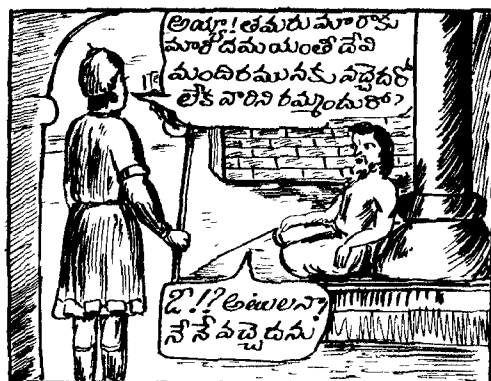 అయ్యా! తమరు మా రాకు
మారి దమయంతీ దేవి
మందిరమునకు వచ్చెదరో
లేక వారిని రమ్మందురో?
ఓ!? అటులనా,
నేనే వచ్చెదను